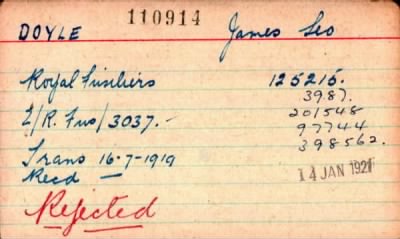 110914
DOYLE James Leo
Royal Fusiliers 125215.
3987.
2/R. Fus/3037.- 201548
97744
Trans 16-7-1919 398562.
Recd — 14 JAN 1921
Rejected